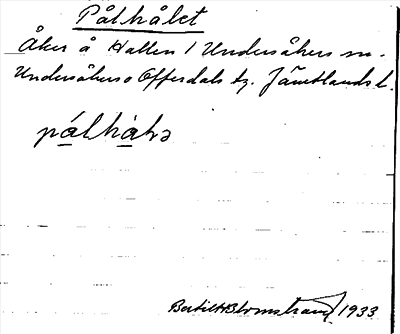 Pålhålet
Åker å Hallen 1 Undersåkers sn.
Undersåkers o Offerdals tg. Jämtlands l.
pálhàlə
Bertil H Blomstrand 1933